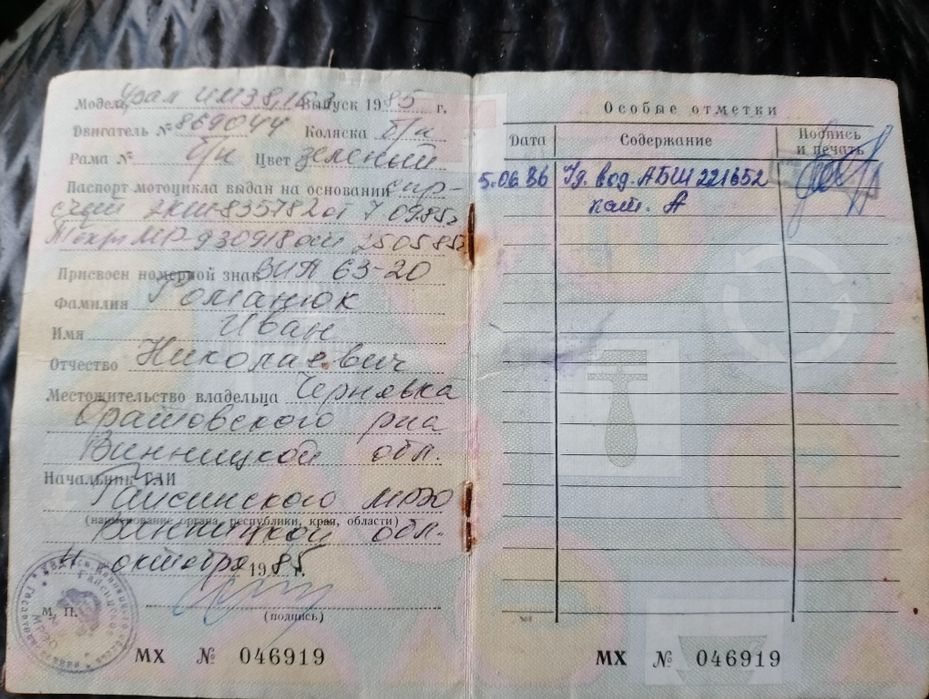 Модель Урал ИМЗ 8,103 Выпуск 1985 г.
Двигатель № 869044 Коляска б/н
Рама № б/н Цвет зеленый
Паспорт мотоцикла выдан на основании спр-
счет 2КШ 835782 от 7 09 85г
МР 930918 от 250585г
Присвоен номерной знак ВИЯ 63-20
Фамилия Романюк
Имя Иван
Отчество Николаевич
Местожительство владельца Чернявка
Оратовского р-на
Винницкой обл.
Начальник ГАИ
Гайсинского МРЭО
(наименование органа, республики, края, области)
Винницкой обл.
11 октября 1985 г.
М. П.
(подпись)
МХ № 046919
Особые отметки
Дата Содержание Подпись и печать
5.06.86 Уд. вод. АБШ 221652
кат. А
МХ № 046919